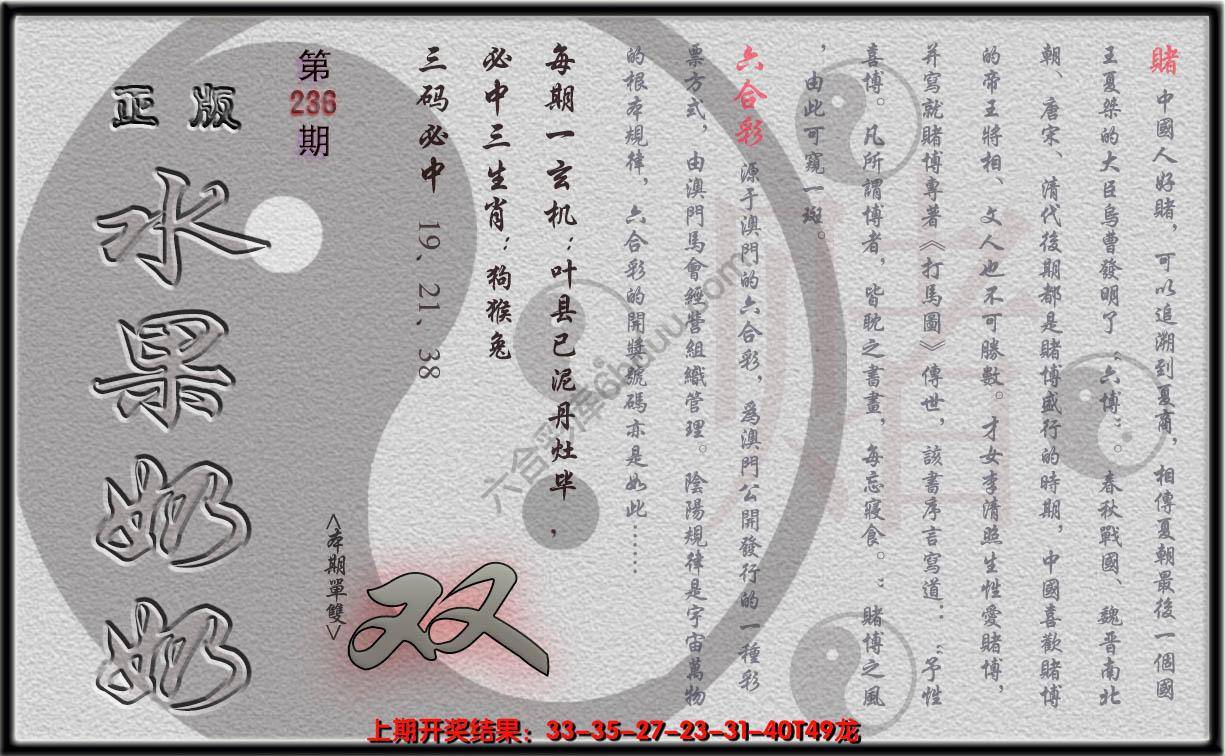 賭 中國人好賭，可以追溯到夏商，相傳夏朝最後一個國
王夏桀的大臣烏曹發明了“六博”。春秋戰國、魏晋南北
朝、唐宋、清代後期都是賭博盛行的時期，中國喜歡賭博
的帝王將相、文人也不可勝數。才女李清照生性愛賭博，
并寫就賭博專著《打馬圖》傳世，該書序言寫道：“予性
喜博。凡所謂博者，皆耽之書畫，每忘寢食。”賭博之風
，由此可窺一斑。
六合彩 源于澳門的六合彩，爲澳門公開發行的一種彩
票方式，由澳門馬會經營組織管理。陰陽規律是宇宙萬物
的根本規律，六合彩的開獎號碼亦是如此……
每期一玄机：叶县已泥丹灶毕，
必中三生肖：狗猴兔
三码必中 19, 21, 38
第
236
期
正版
水果奶奶
<本期單雙>
双
上期开奖结果：33-35-27-23-31-40T49龙